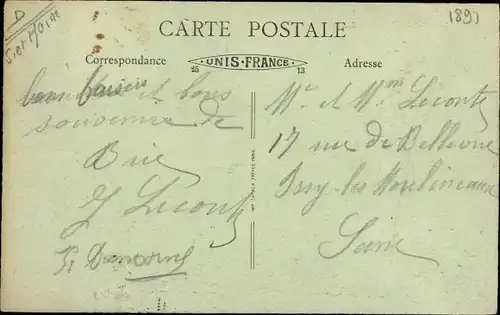 D
1891
CARTE POSTALE
Correspondance
UNIS-FRANCE
25
13
Adresse
et bons
souvenirs de
Brie
J Leconte
Mr et Mme Leconte
17 rue de Bellevue
Issy-les-Moulineaux
Seine